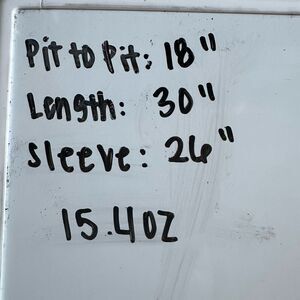 Pit to Pit: 18"
Length: 30"
Sleeve: 26"
15.4oz